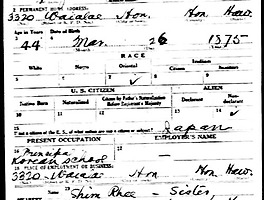 2 PERMANENT HOME ADDRESS:
3320 Waialae Hon. Hon. Haw.
Age in Years Date of Birth
44 Mar. 26 1875
RACE
White Negro Oriental Indian
Citizen Noncitizen
✓
U. S. CITIZEN ALIEN
Native Born Naturalized Citizen by Father's Naturalization Before Registrant's Majority Declarant Non-declarant
✓
15 If not a citizen of the U. S., of what nation are you a citizen or subject? Japan
PRESENT OCCUPATION EMPLOYER'S NAME
16 Principal
Korean School
18 PLACE OF EMPLOYMENT OR BUSINESS:
3320 Waialae Hon Hon. Haw.
19 Shim Rhee - Sister